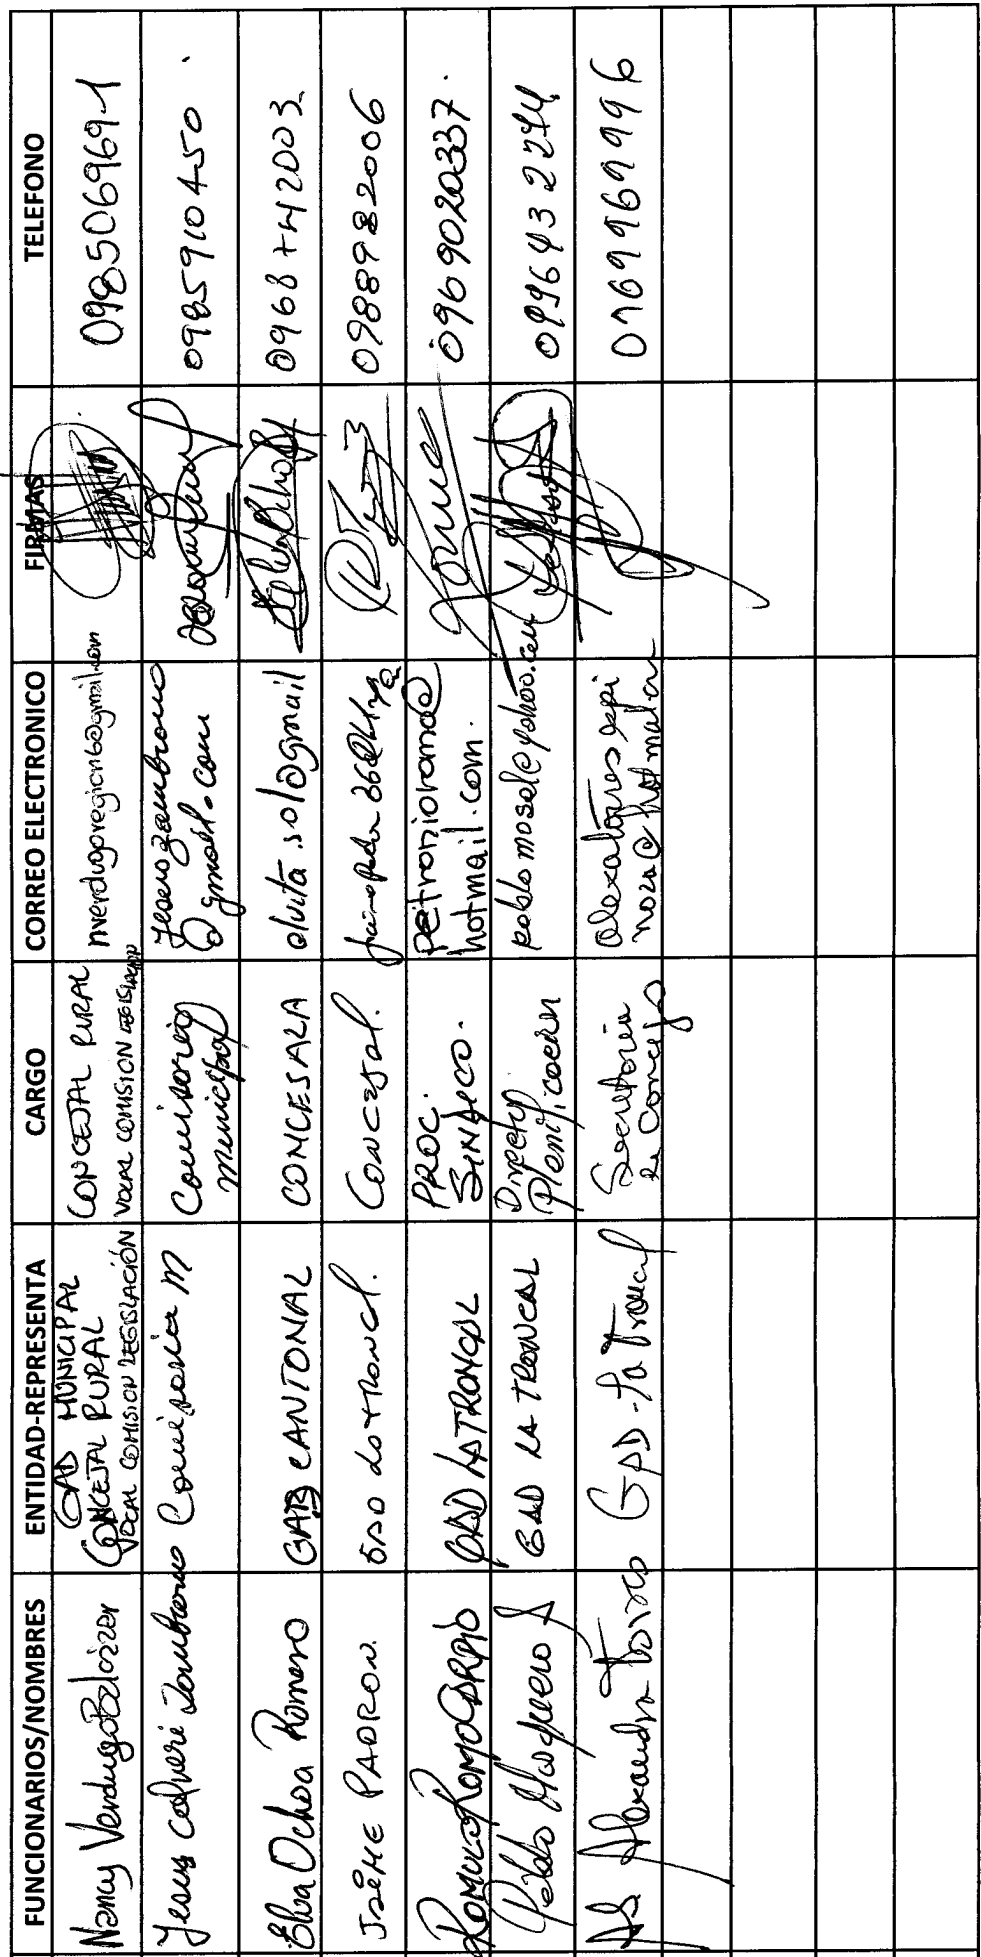 FUNCIONARIOS/NOMBRES ENTIDAD-REPRESENTA CARGO CORREO ELECTRONICO FIRMAS TELEFONO
Nancy Verdugo GAD MUNICIPAL
CONCEJAL RURAL
VOCAL COMISION LEGISLACIÓN CONCEJAL RURAL
VOCAL COMISION LEGISLACION nverdugoregion6@gmail.com 0985069691
Jesus Zambrano Comisaria M Comisaria
Municipal
@gmail.com 0985910450
Elva Ochoa Romero GAD CANTONAL CONCESALA elvita.sol@gmail 0968742003
JAIME PADRON GAD La Troncal. Concejal. 0988982006
ROMULO ROMO GAD LA TRONCAL PROC.
SINDICO. petronioromo@
hotmail.com. 0969020337
Pablo Mosquera GAD LA TRONCAL Director
Planificacion pablomosa@yahoo.com
Ab Alexandra Torres GAD-La Troncal Secretaria
de Concejo alexatorresespi
noza@hotmail.com 0969969996